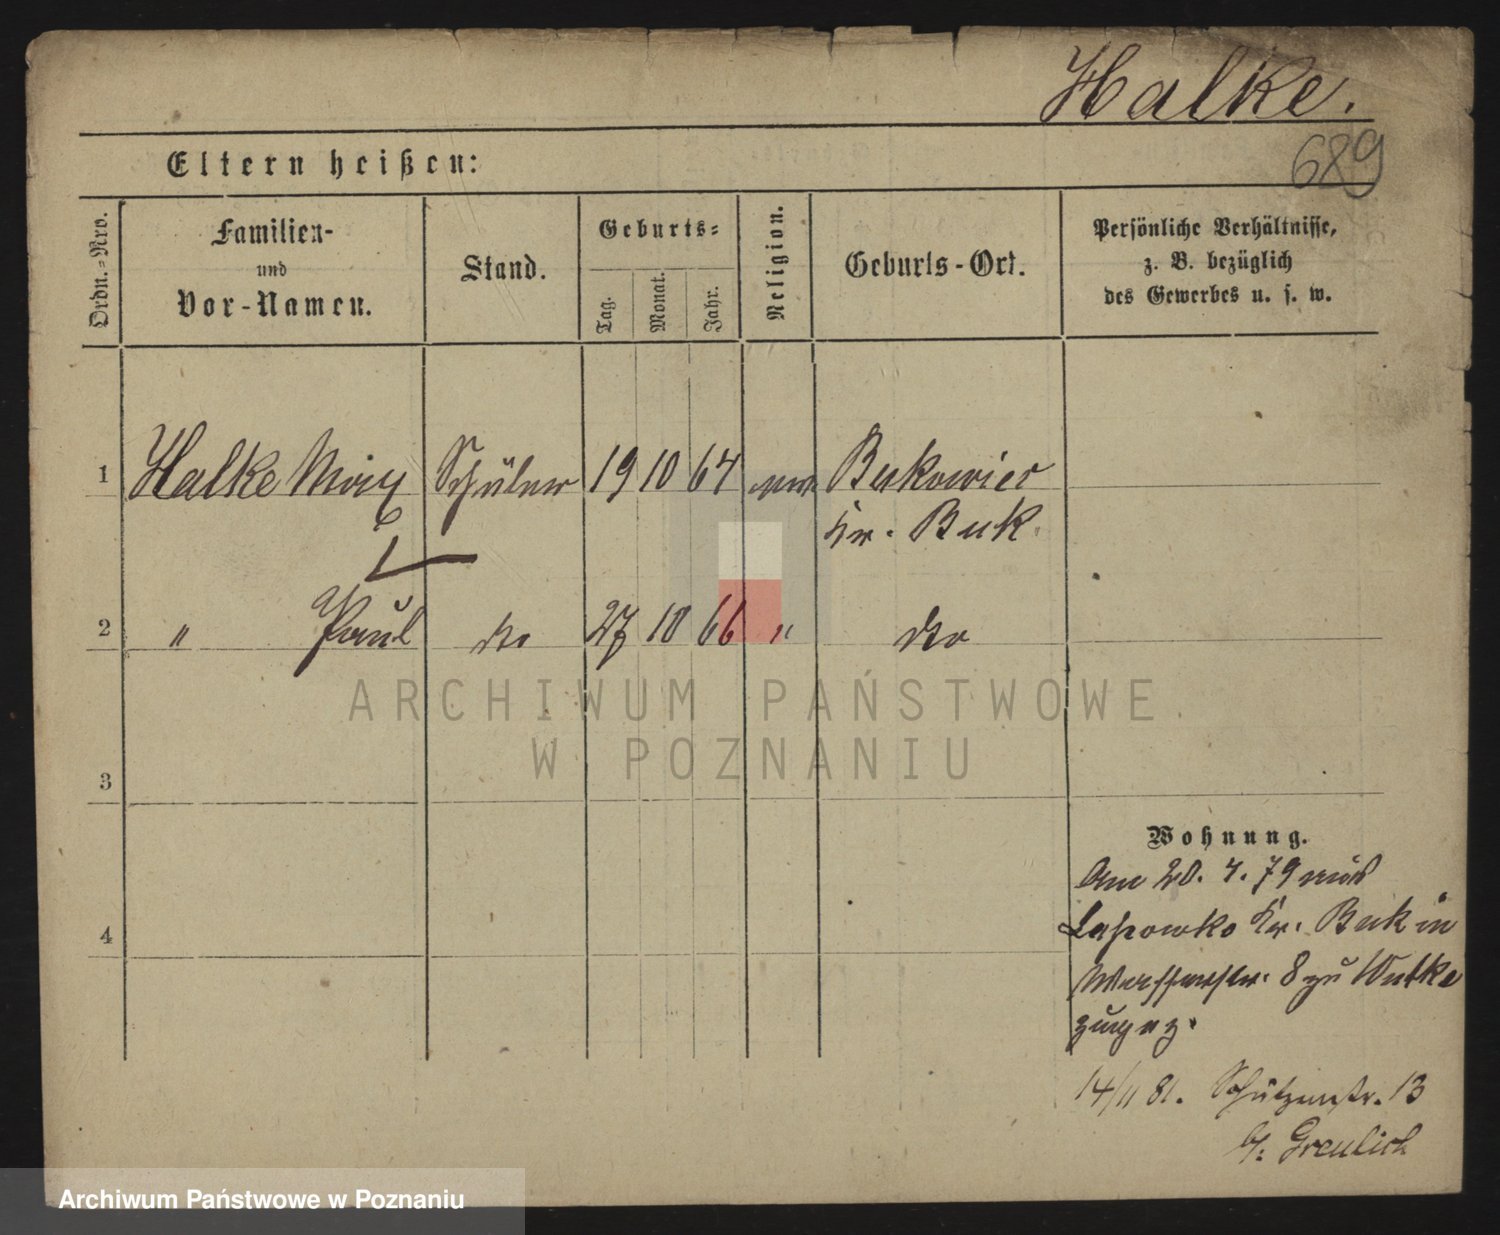 Halke.
689
Eltern heißen:
Ordn.-Nro.
Familien-
und
Vor-Namen.
Stand.
Geburts-
Tag.
Monat.
Jahr.
Religion.
Geburts-Ort.
Persönliche Verhältnisse,
z. B. bezüglich
des Gewerbes u. s. w.
1 Halke Max Schüler 19 10 64 Bukowiec
Kr. Buk.
2 " Paul dto 27 10 66 " dto
ARCHIWUM PAŃSTWOWE
W POZNANIU
3
Wohnung.
Am 20. 4. 79 aus
Kr. Buk in
4
8 zu Wutke
zugez.
14/11 81. Schützenstr. 13
b/. Greulich
Archiwum Państwowe w Poznaniu